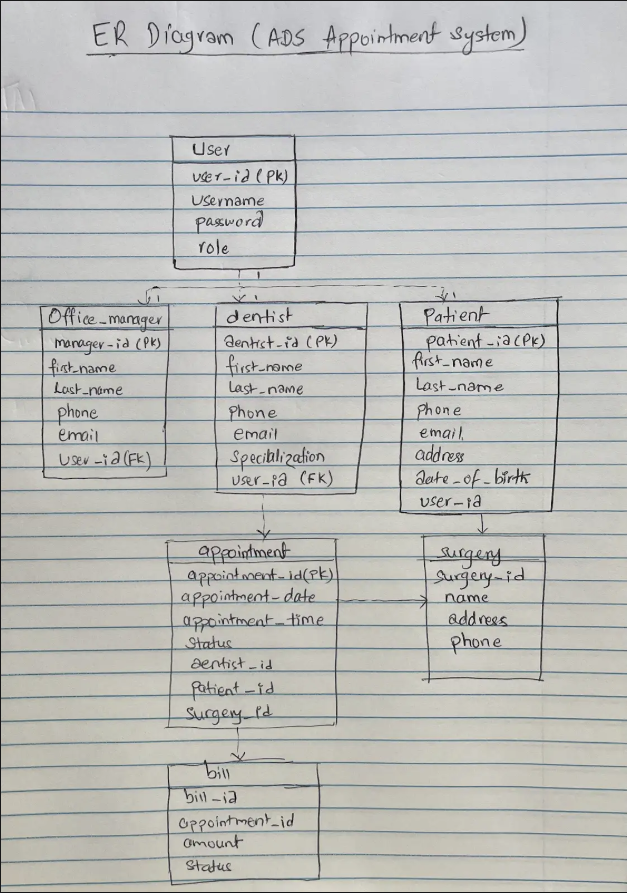 ER Diagram (ADS Appointment System)
User
user-id (PK)
Username
password
role
1
1
1
1
Office_manager
manager-id (PK)
first_name
Last_name
phone
email
User_id (FK)
dentist
dentist_id (PK)
first_name
Last_name
Phone
email
Specialization
user_id (FK)
Patient
patient_id (PK)
first_name
Last_name
phone
email
address
date_of_birth
user_id
appointment
appointment_id (PK)
appointment_date
appointment_time
Status
dentist_id
patient_id
surgery_id
surgery
surgery_id
name
address
phone
bill
bill_id
appointment_id
amount
Status